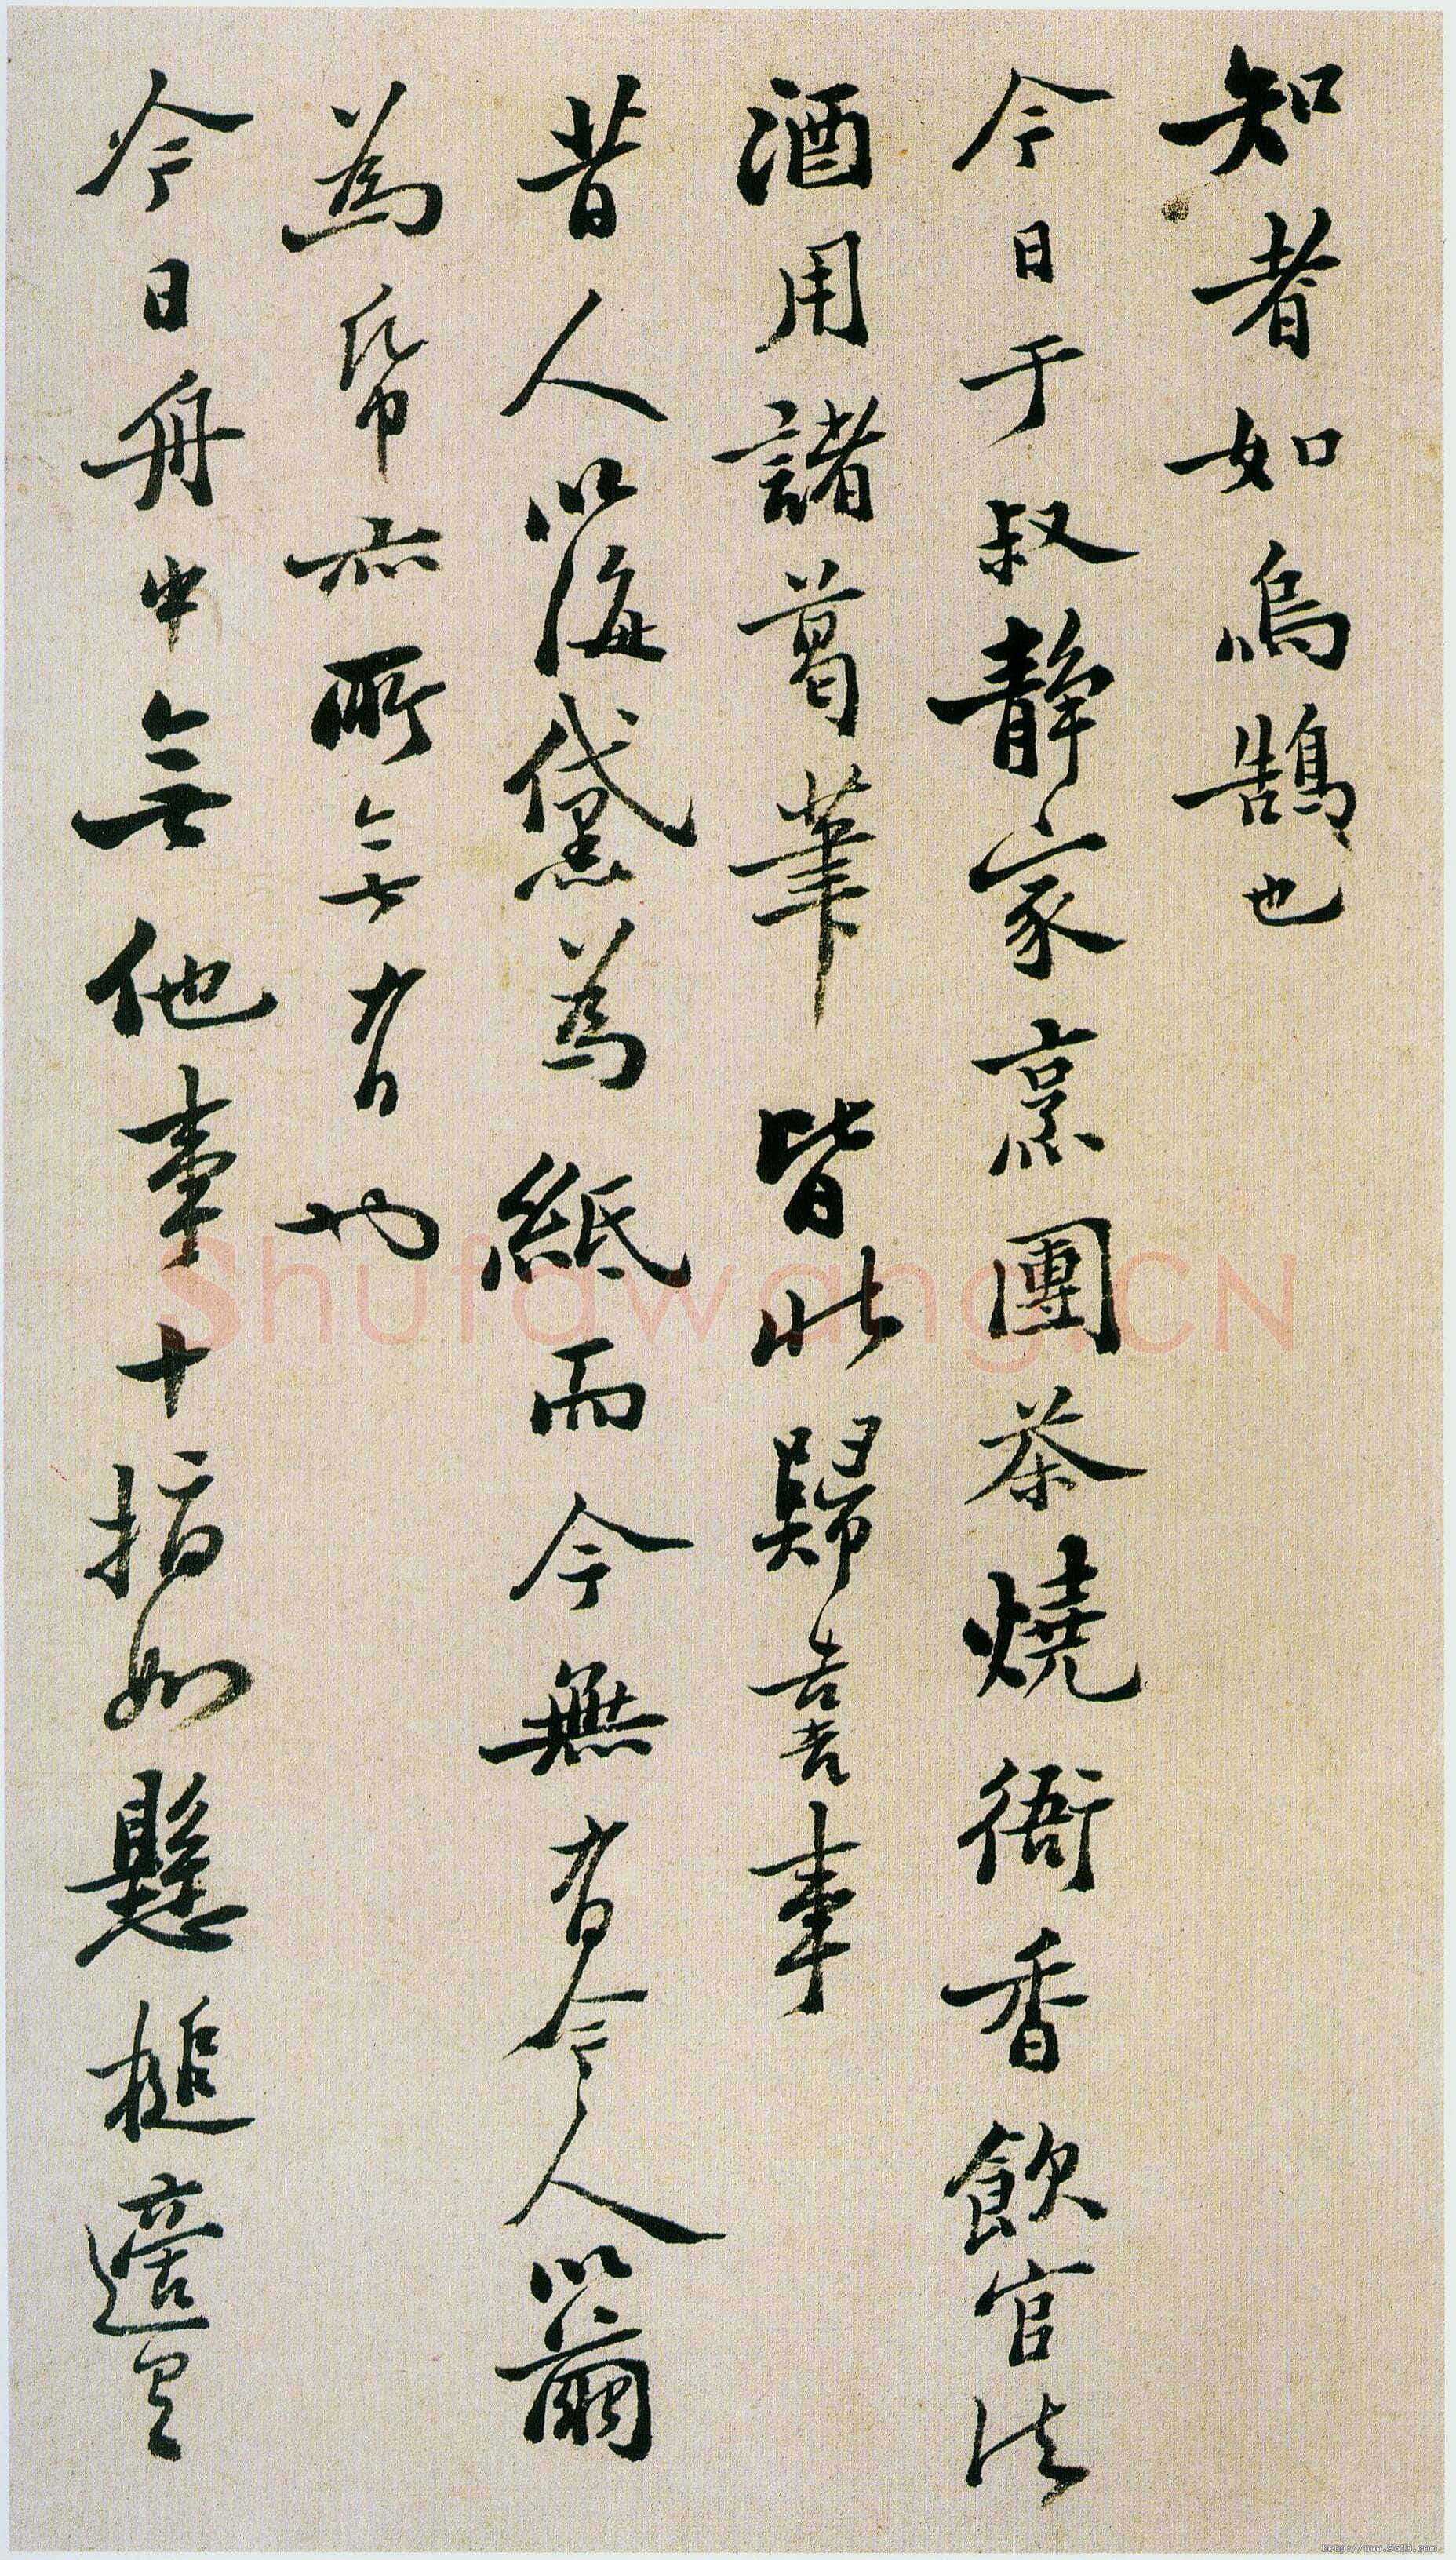 知者如烏鵲也
今日于叔靜家烹團茶燒衙香飲官法
酒用諸葛筆皆此歸喜事
昔人以海黛為紙而今無有今人以繭
為紙亦所無有也
今日舟中無他事十指如懸槌適有
Shufawang.CN
http://www.9610.com